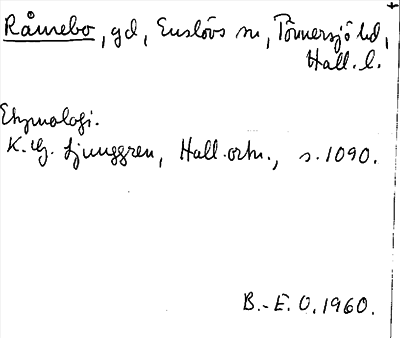 Råmebo, gd, Enslövs sn, Tönnersjö hd,
Hall. l.
Etymologi.
K. G. Ljunggren, Hall. ortn., s. 1090.
B.-E. O. 1960.